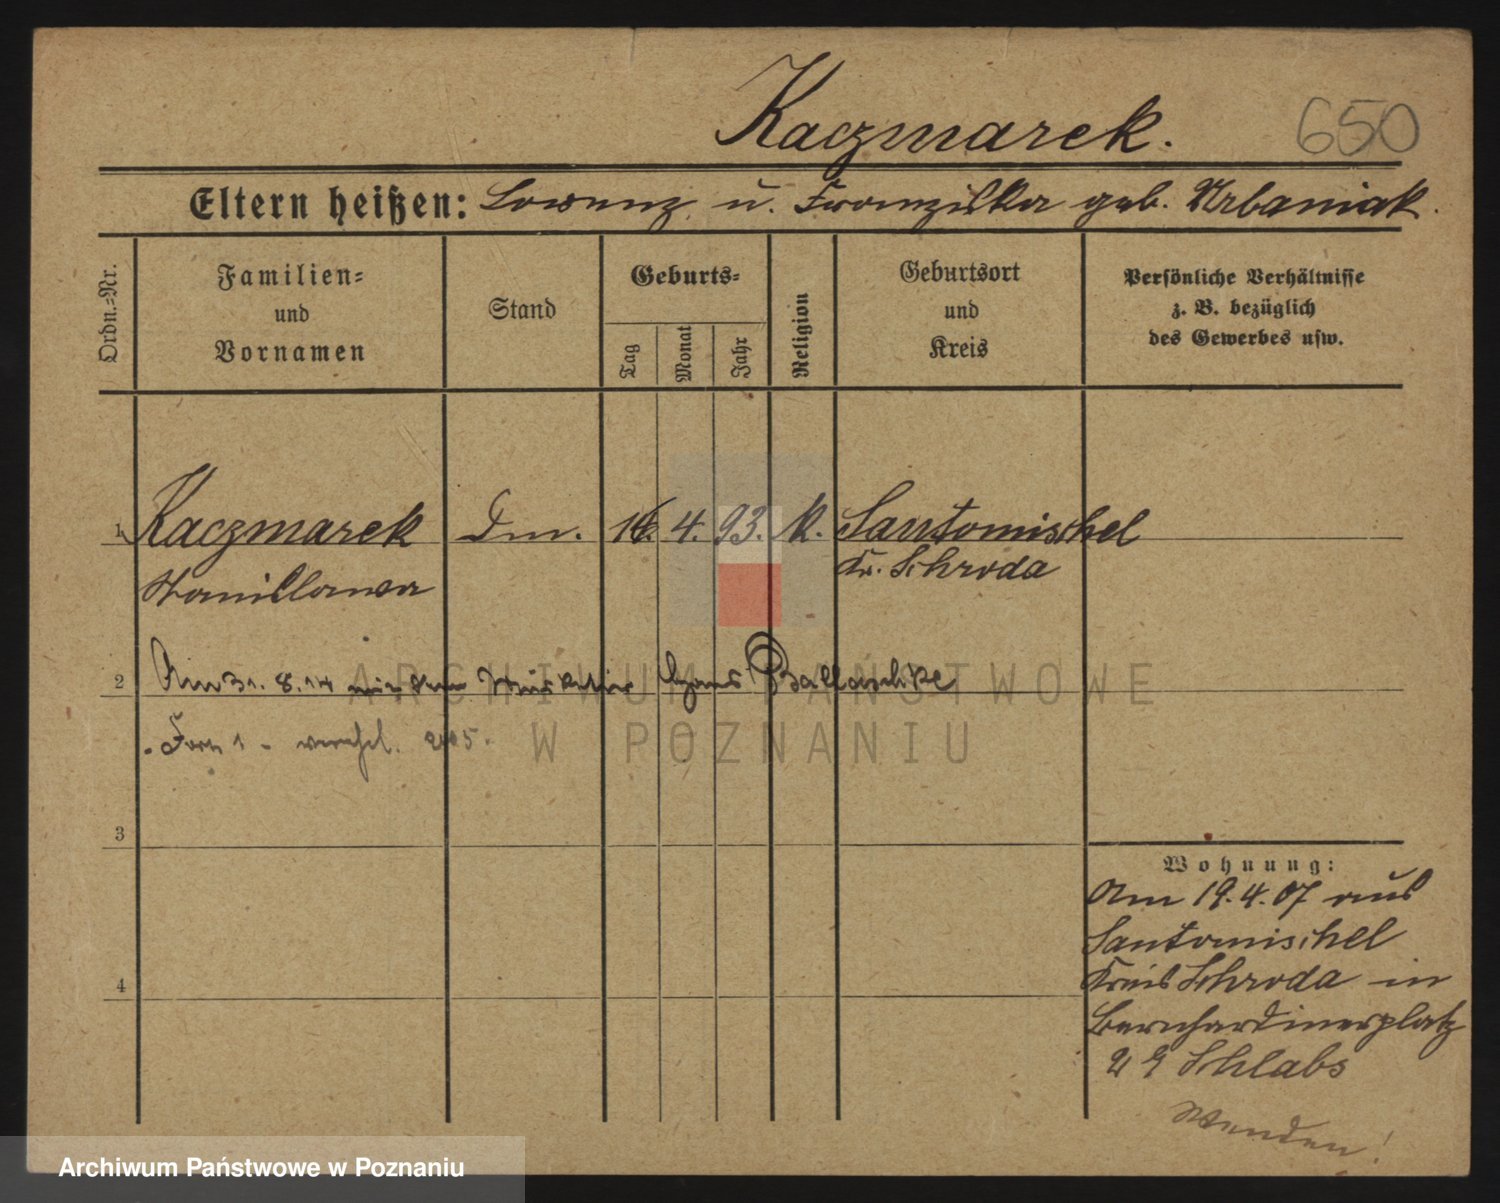 Kaczmarek. 650
Eltern heißen: Lorenz u. Franziska geb. Urbaniak.
Ordn.-Nr.
Familien-
und
Vornamen
Stand
Geburts-
Tag
Monat
Jahr
Religion
Geburtsort
und
Kreis
Persönliche Verhältnisse
z. B. bezüglich
des Gewerbes usw.
1 Kaczmarek 4. 93. k. Santomischel
Stanislawa Kr. Schroda
2 Am 31. 8. 14 mit dem Musketier Hans
verehel.
ARCHIWUM PAŃSTWOWE
W POZNANIU
3
4
Wohnung:
Am 19.4.07 aus
Santomischel
Kreis Schroda in
Bernhardinerplatz
Schlabs
Wenden!
Archiwum Państwowe w Poznaniu